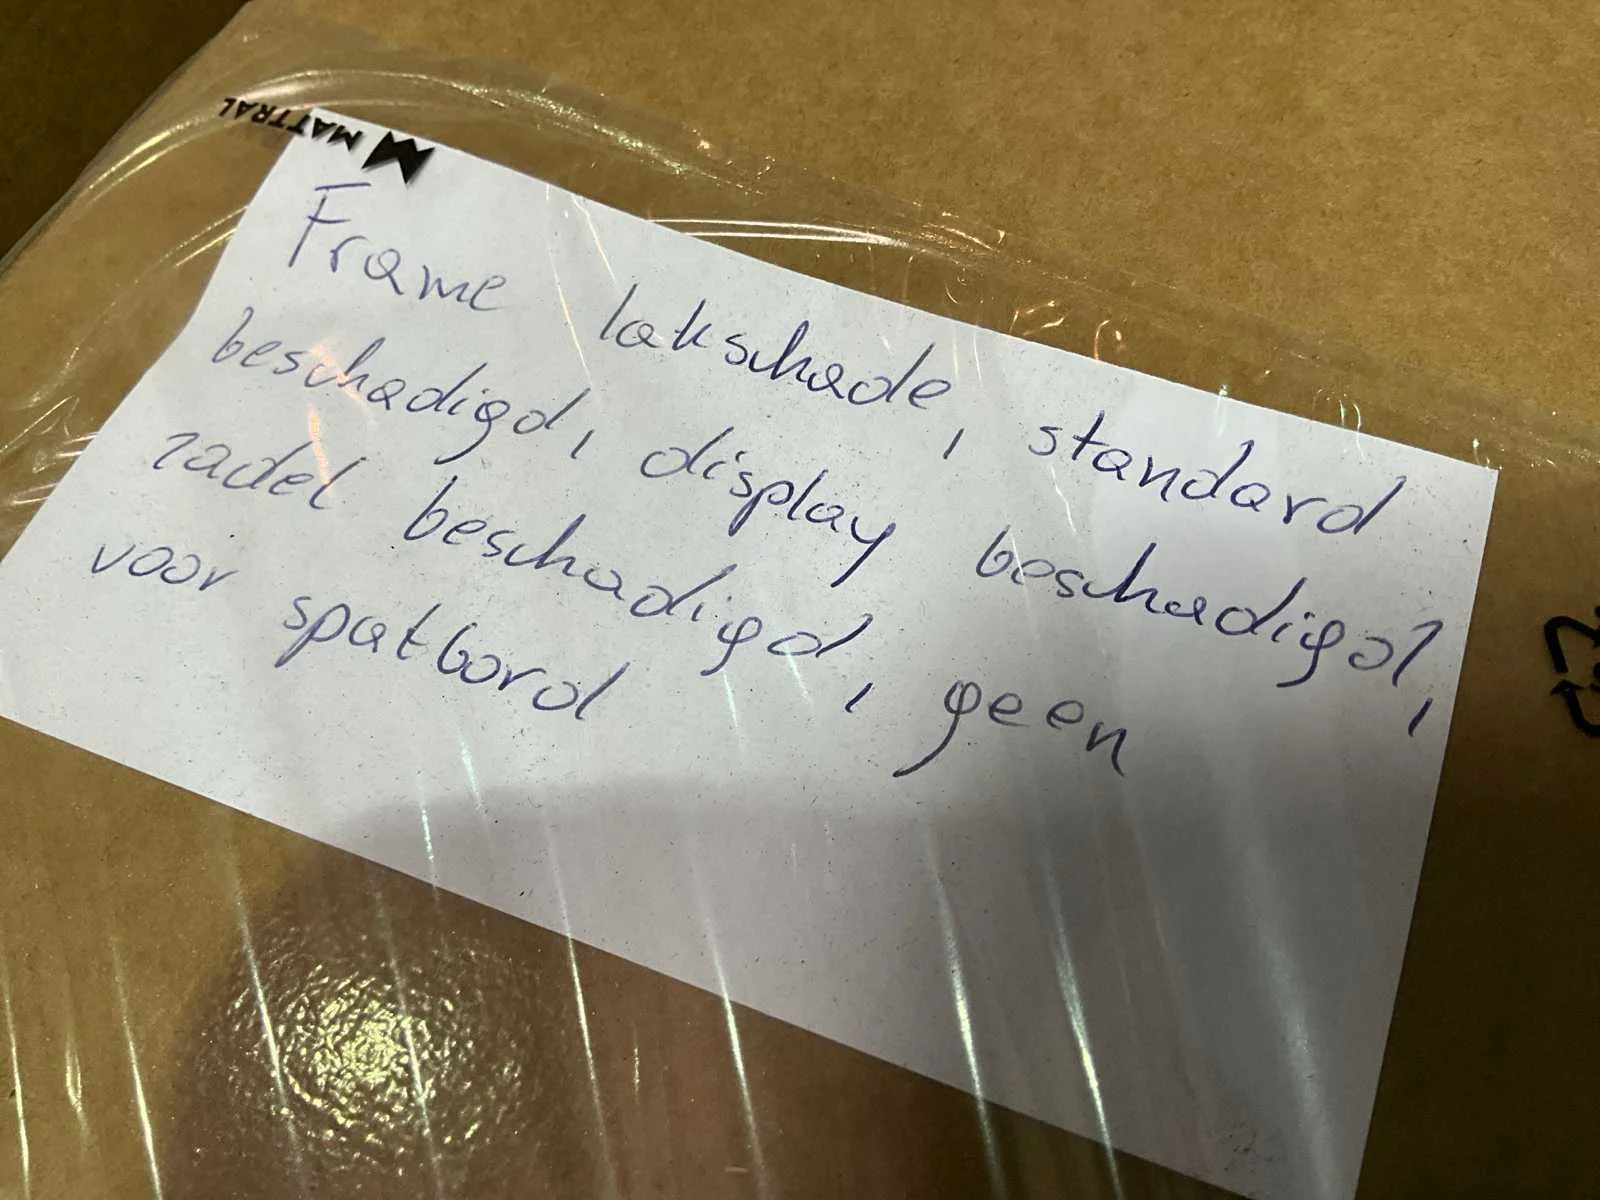 MATTRAL
Frame lakschade, standard
beschadigd, display beschadigd,
zadel beschadigd, geen
voor spatbord